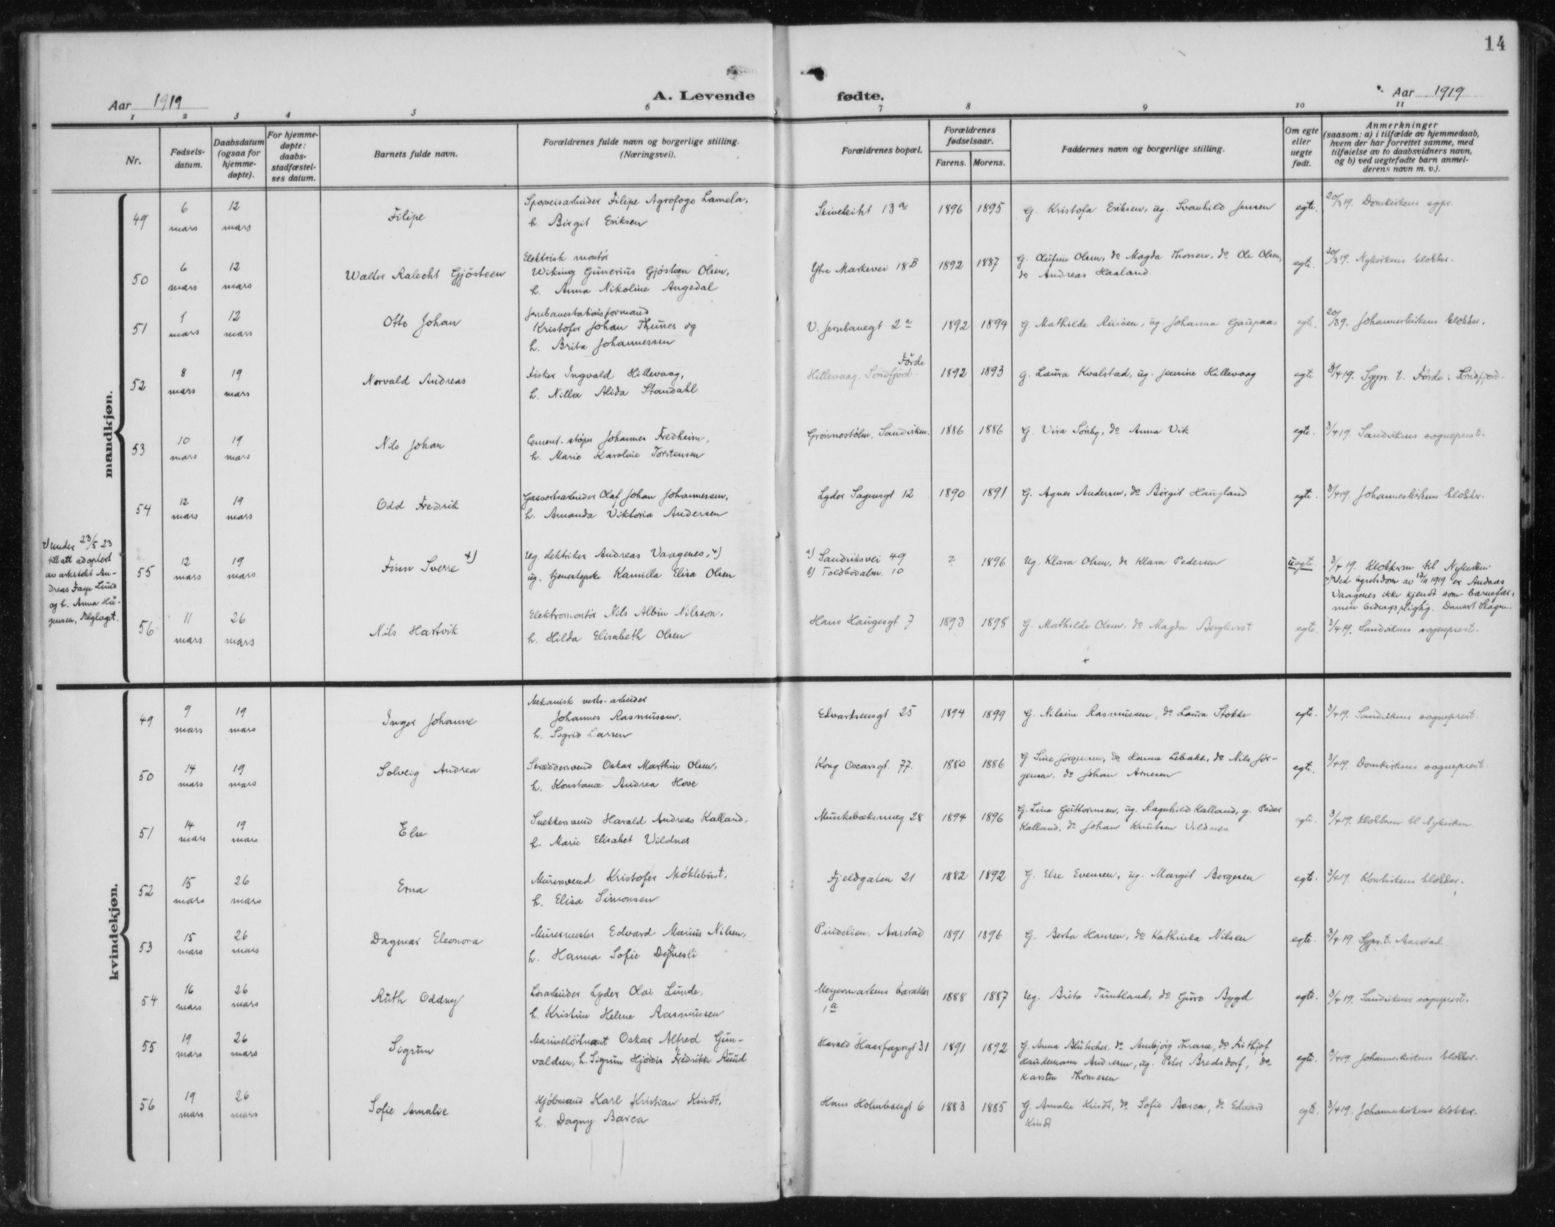 14
Aar 1919
A. Levende fødte.
Aar 1919
1 2 3 4 5 6 7 8 9 10 11
Nr.
Fødsels-
datum.
Daabsdatum
(ogsaa for
hjemme-
døpte).
For hjemme-
døpte:
daabs-
stadfæstel-
ses datum.
Barnets fulde navn.
Forældrenes fulde navn og borgerlige stilling.
(Næringsvei).
Forældrenes bopæl.
Forældrenes
fødselsaar.
Farens. Morens.
Faddernes navn og borgerlige stilling.
Om egte
eller
uegte
født.
Anmerkninger
(saasom: a) i tilfælde av hjemmedaab,
hvem der har forrettet samme, med
tilføielse av to daabsvidners navn,
og b) ved uegtefødte barn anmel-
derens navn m. v.).
mandkjøn.
49
6
mars
12
mars
Filipe
Sporveisarbeider Filipe Agrofogo Lamela,
h. Birgit Eriksen
13 a
1896 1895
g. Kristofa Eriksen, ug. Svanhild Jensen
egte.
Domkirkens sgpr.
50
6
mars
12
mars
Walter Ralecht Gjøsteen
Elektrisk montør
Wiking Gunerius Gjøsteen Olsen,
h. Anna Nikoline Angedal
Ytre Markevei 18 B
1892 1887
g. Olufine Olsen, do Magda Thomsen, do Ole Olsen,
do Andreas Haaland
egte.
Nykirkens klokker.
51
1
mars
12
mars
Otto Johan
Jernbanestationsformand
Kristofer Johan Thunes og
h. Brita Johannessen
V. Jernbanegt 2 a
1892 1894
g. Mathilde ug Johanna Gaupaas
egte.
Johanneskirkens klokker.
52
8
mars
19
mars
Norvald Andreas
Fisker Ingvald Hillevaag,
h. Nilla Alida Standahl
Førde
Hillevaag, Søndfjord.
1892 1893
g. Laura Kvalstad, ug. Jenine Hillevaag
egte
3/4 19. Sgpr. t. Førde i Søndfjord.
53
10
mars
19
mars
Nils Johan
Cement-støper Johannes Fredheim,
h. Marie Karoline Torstensen
Grønnestølen, Sandviken.
1886 1886
g. Vira Sønby, do Anna Vik
egte.
3/4 19. Sandvikens sogneprest.
54
12
mars
19
mars
Odd Fredrik
Gasverksarbeider Olaf Johan Johannessen,
h. Amanda Viktoria Andersen
Lyder Sagensgt 12
1890 1891
g. Agnes Andersen, do Birgit Haugland
egte.
3/4 19. Johanneskirkens klokker.
Under 23/5 23
tillatt adoptert
av arkitekt An-
dreas Faye Lund
og h. Anna Hu-
gensen,
55
12
mars
19
mars
Finn Sverre
Ug. elektriker Andreas Vaagenes,
ug. tjenestepike Kamilla Elisa Olsen
a) Sandviksvei 49
b) Toldbodalm. 10
?
1896
Ug. Klara Olsen, do Klara Pedersen
Uegte.
3/4 19. Klokkeren til Nykirken
Ved byretsdom av 12/11 1919 er Andreas
Vaagenes ikke kjendt som barnefar,
men bidragspligtig.
56
11
mars
26
mars
Nils Hartvik
Elektromontør Nils Albin Nilsson,
h. Hilda Elisabeth Olsen
Hans Haugesgt 7
1893 1898
g. Mathilde Olsen, do Magda Bergkvist
egte.
3/4 19. Sandvikens sogneprest.
kvindekjøn.
49
9
mars
19
mars
Inger Johanne
Mekanisk verks. arbeider
Johannes Rasmussen,
h. Sigrid Larsen
Edvardsensgt 25
1894 1899
g. Nilsine Rasmussen, do Laura Stokke
egte.
3/4 19. Sandvikens sogneprest.
50
14
mars
19
mars
Solveig Andrea
Skræddersvend Oskar Marthin Olsen,
h. Konstance Andrea Hove
Kong Oscarsgt. 77.
1880 1886
g. Sine Jørgensen, do Hanna Lebakk, do Nils Jør-
gensen, do Johan Arnesen
egte.
3/4 19. Domkirkens sogneprest.
51
14
mars
19
mars
Else
Snekkersvend Harald Andreas Kalland,
h. Marie Elisabet Vildnes
Munkebæksmug 28
1894 1896
g. Lina Guttormsen, ug. Ragnhild Kalland, g. Peder
Kalland, do Johan Knutsen Vildnes
egte.
3/4 19. Klokkeren til Nykirken
52
15
mars
26
mars
Erna
Murersvend Kristofer Møklebust,
h. Elisa Simonsen
Fjeldgaten 21
1882 1892
g. Else Evensen, ug. Margit Bergesen
egte.
3/4 19. Korskirkens klokker.
53
15
mars
26
mars
Dagmar Eleonora
Murermester Edvard Marius Nilsen,
h. Hanna Sofie Degnesli
Aarstad
1891 1896
g. Berta Hansen, do Kathinka Nilsen
egte.
3/4 19. Sgpr. t. Aarstad.
54
16
mars
26
mars
Ruth Oddny
Løsarbeider Lyder Olai Lunde,
h. Kristine Helene Rasmussen
Meyermarkens barakker
1 a
1888 1887
Ug. Brita Tuntland, do Guro Bygd
egte.
3/4 19. Sandvikens sogneprest.
55
19
mars
26
mars
Sigrun
Marineløitnant Oskar Alfred Gun-
valdsen, h. Sigrun Hjördis Fredrikke Ruud
Harald Haarfagresgt 31
1891 1892
g. Anna Blütecher, do Arnbjørg Thrane, do Frithjof
Landemann Andersen, ug. Peter Bredsdorf, do
Karsten Thomesen
egte.
3/4 19. Johanneskirkens klokker.
56
19
mars
26
mars
Sofie Amalie
Kjøbmand Karl Kristian Kindt,
h. Dagny Barca
Hans Holmboesgt 6
1883 1885
g. Amalie Kindt, do Sofie Barca, do Edvard
Kindt
egte.
3/4 19. Johanneskirkens klokker.